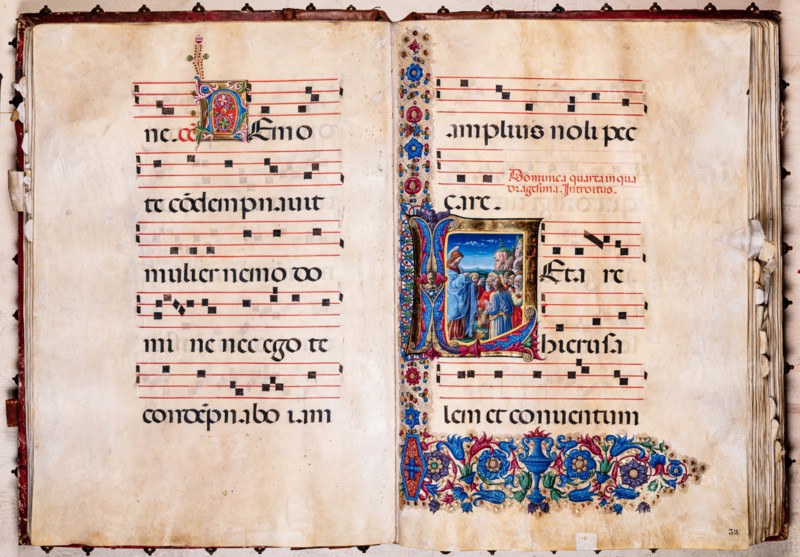 ne. cō NEmo
te cōdempnauit
mulier nemo do
mi ne nec ego te
condēpnabo iam
amplius noli pec
Dominica quarta in qua
dragesima. Introitus.
care.
LEta re
hierusa
lem et conuentum
39